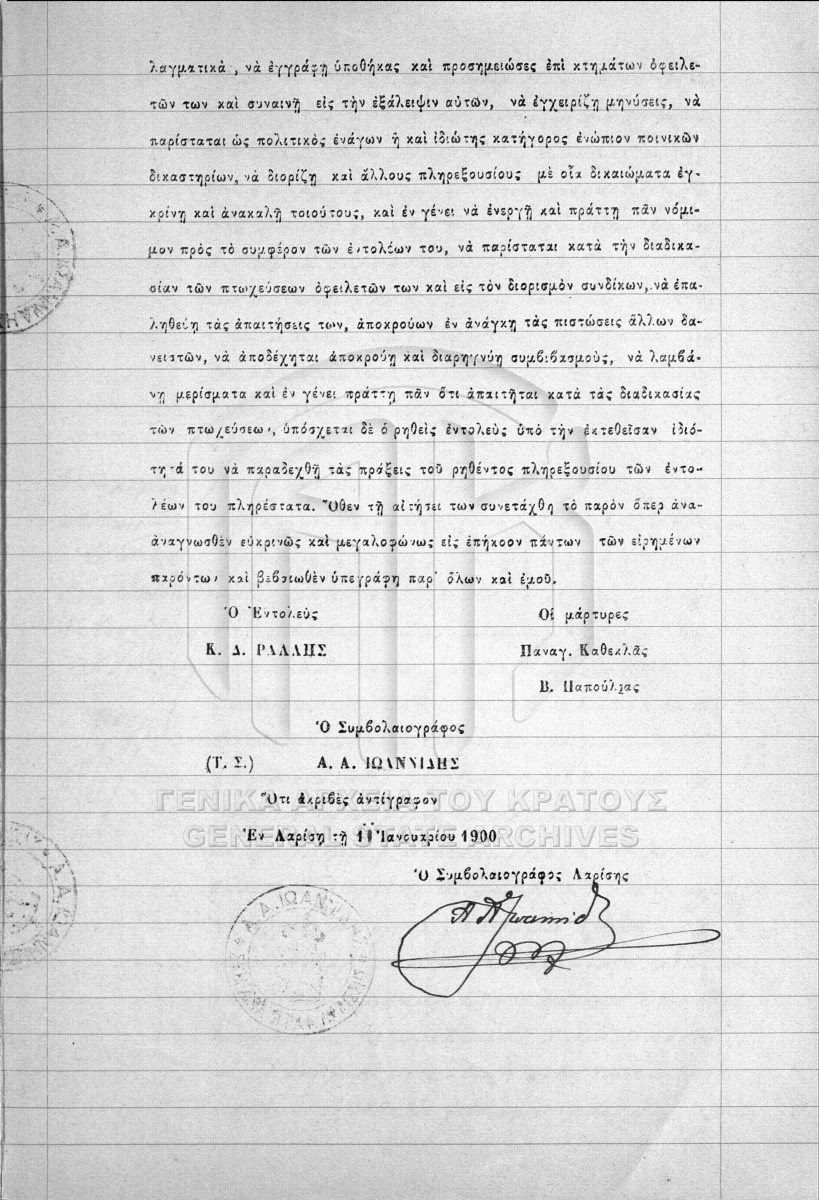 λαγματικὰ, νὰ ἐγγράφῃ ὑποθήκας καὶ προσημειώσες ἐπὶ κτημάτων ὀφειλε-
τῶν των καὶ συναινῇ εἰς τὴν ἐξάλειψιν αὐτῶν, νὰ ἐγχειρίζῃ μηνύσεις, νὰ
παρίσταται ὡς πολιτικὸς ἐνάγων ἢ καὶ ἰδιώτης κατήγορος ἐνώπιον ποινικῶν
δικαστηρίων, νὰ διορίζῃ καὶ ἄλλους πληρεξουσίους μὲ οἷα δικαιώματα ἐγ-
κρίνῃ καὶ ἀνακαλῇ τοιούτους, καὶ ἐν γένει νὰ ἐνεργῇ καὶ πράττῃ πᾶν νόμι-
μον πρὸς τὸ συμφέρον τῶν ἐντολέων του, νὰ παρίσταται κατὰ τὴν διαδικα-
σίαν τῶν πτωχεύσεων ὀφειλετῶν των καὶ εἰς τὸν διορισμὸν συνδίκων, νὰ ἐπα-
ληθεύῃ τὰς ἀπαιτήσεις των, ἀποκρούων ἐν ἀνάγκῃ τὰς πιστώσεις ἄλλων δα-
νειστῶν, νὰ ἀποδέχηται ἀποκρούῃ καὶ διαρηγνύῃ συμβιβασμοὺς, νὰ λαμβά-
νῃ μερίσματα καὶ ἐν γένει πράττῃ πᾶν ὅτι ἀπαιτῆται κατὰ τὰς διαδικασίας
τῶν πτωχεύσεων, ὑπόσχεται δὲ ὁ ρηθεὶς ἐντολεὺς ὑπὸ τὴν ἐκτεθεῖσαν ἰδιό-
τητά του νὰ παραδεχθῇ τὰς πράξεις τοῦ ρηθέντος πληρεξουσίου τῶν ἐντο-
λέων του πληρέστατα. Ὅθεν τῇ αἰτήσει των συνετάχθη τὸ παρὸν ὅπερ ἀνα-
αναγνωσθὲν εὐκρινῶς καὶ μεγαλοφώνως εἰς ἐπήκοον πάντων τῶν εἰρημένων
παρόντων καὶ βεβαιωθὲν ὑπεγράφη παρ' ὅλων καὶ ἐμοῦ.
Ὁ Ἐντολεὺς
Κ. Δ. ΡΑΛΛΗΣ
Οἱ μάρτυρες
Παναγ. Καθεκλᾶς
Β. Παπούλιας
Ὁ Συμβολαιογράφος
(Τ. Σ.) Α. Α. ΙΩΑΝΝΙΔΗΣ
Ὅτι ἀκριβὲς ἀντίγραφον
ΓΕΝΙΚΑ ΑΡΧΕΙΑ ΤΟΥ ΚΡΑΤΟΥΣ
Ἐν Λαρίσῃ τῇ 11 Ἰανουαρίου 1900
GENERAL STATE ARCHIVES
Ὁ Συμβολαιογράφος Λαρίσης
Α. Α. ΙΩΑΝΝΙΔΗΣ